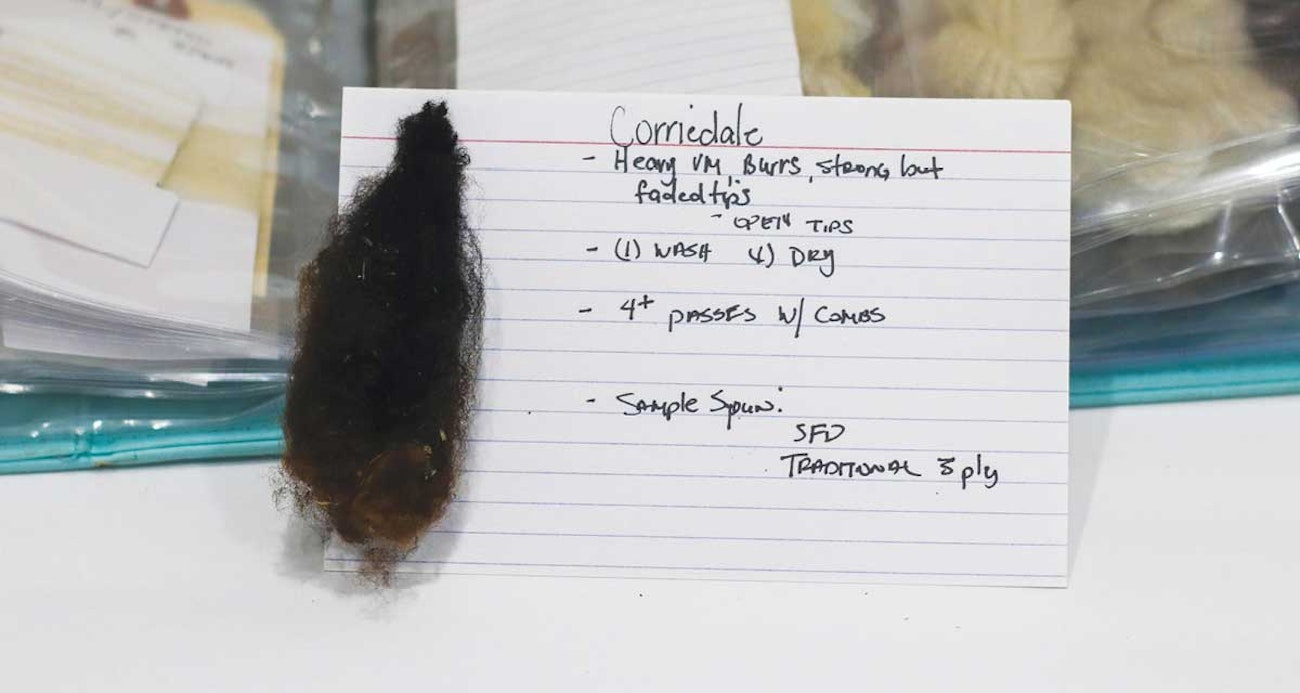 Corriedale
- Heavy VM, Burrs, strong but
faded tips
- OPEN TIPS
- (1) WASH & DRY
- 4+ PASSES W/ COMBS
- Sample Spun:
SFD
TRADITIONAL 3 ply